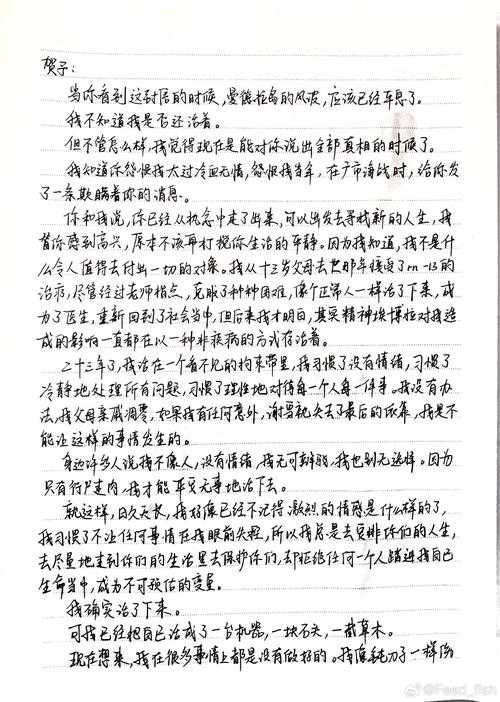 贺予：
当你看到这封信的时候，曼德拉岛的风波，应该已经平息了。
我不知道我是否还活着。
但不管怎么样，我觉得现在是能对你说出全部真相的时候了。
我知道你怨恨我太过冷血无情，怨恨我当年，在广市海战时，给你发
了一条欺瞒着你的消息。
你和我说，你已经从执念中走了出来，可以出发去寻找新的人生，我
替你感到高兴，原本不该再打搅你生活的平静。因为我知道，我不是什
么令人值得去付出一切的对象。我从十三岁父母去世那年接受了rn-13的
治疗，尽管经过老师指点，克服了种种困难，像个正常人一样活了下来，成
为了医生，重新回到了社会当中，但后来我才明白，其实精神埃博拉对我造
成的影响一直都在以一种非疾病的方式存活着。
二十三年了，我活在一个看不见的拘束带里，我习惯了没有情绪，习惯了
冷静地处理所有问题，习惯了理性地对待每一个人每一件事。我没有办
法，我父母亲戚凋零，如果我有任何意外，谢雪就失去了最后的依靠，我是不
能让这样的事情发生的。
身边许多人说我不像人，没有情绪，我无可辩驳，我也别无选择。因为
只有行尸走肉，我才能平安无事地活下去。
就这样，日久天长，我好像已经不记得激烈的情感是什么样的了，
我习惯了不让任何事情在我眼前失控，所以我总是去安排你们的人生，
去尽量地走到你们的生活里去保护你们，却拒绝任何一个人踏进我自己
生命当中，成为不可预估的变量。
我确实活了下来。
可我已经把自己活成了一台机器，一块石头，一截草木。
现在想来，我在很多事情上都是没有做好的。我像钝刀了一样伤
@Feed_fish